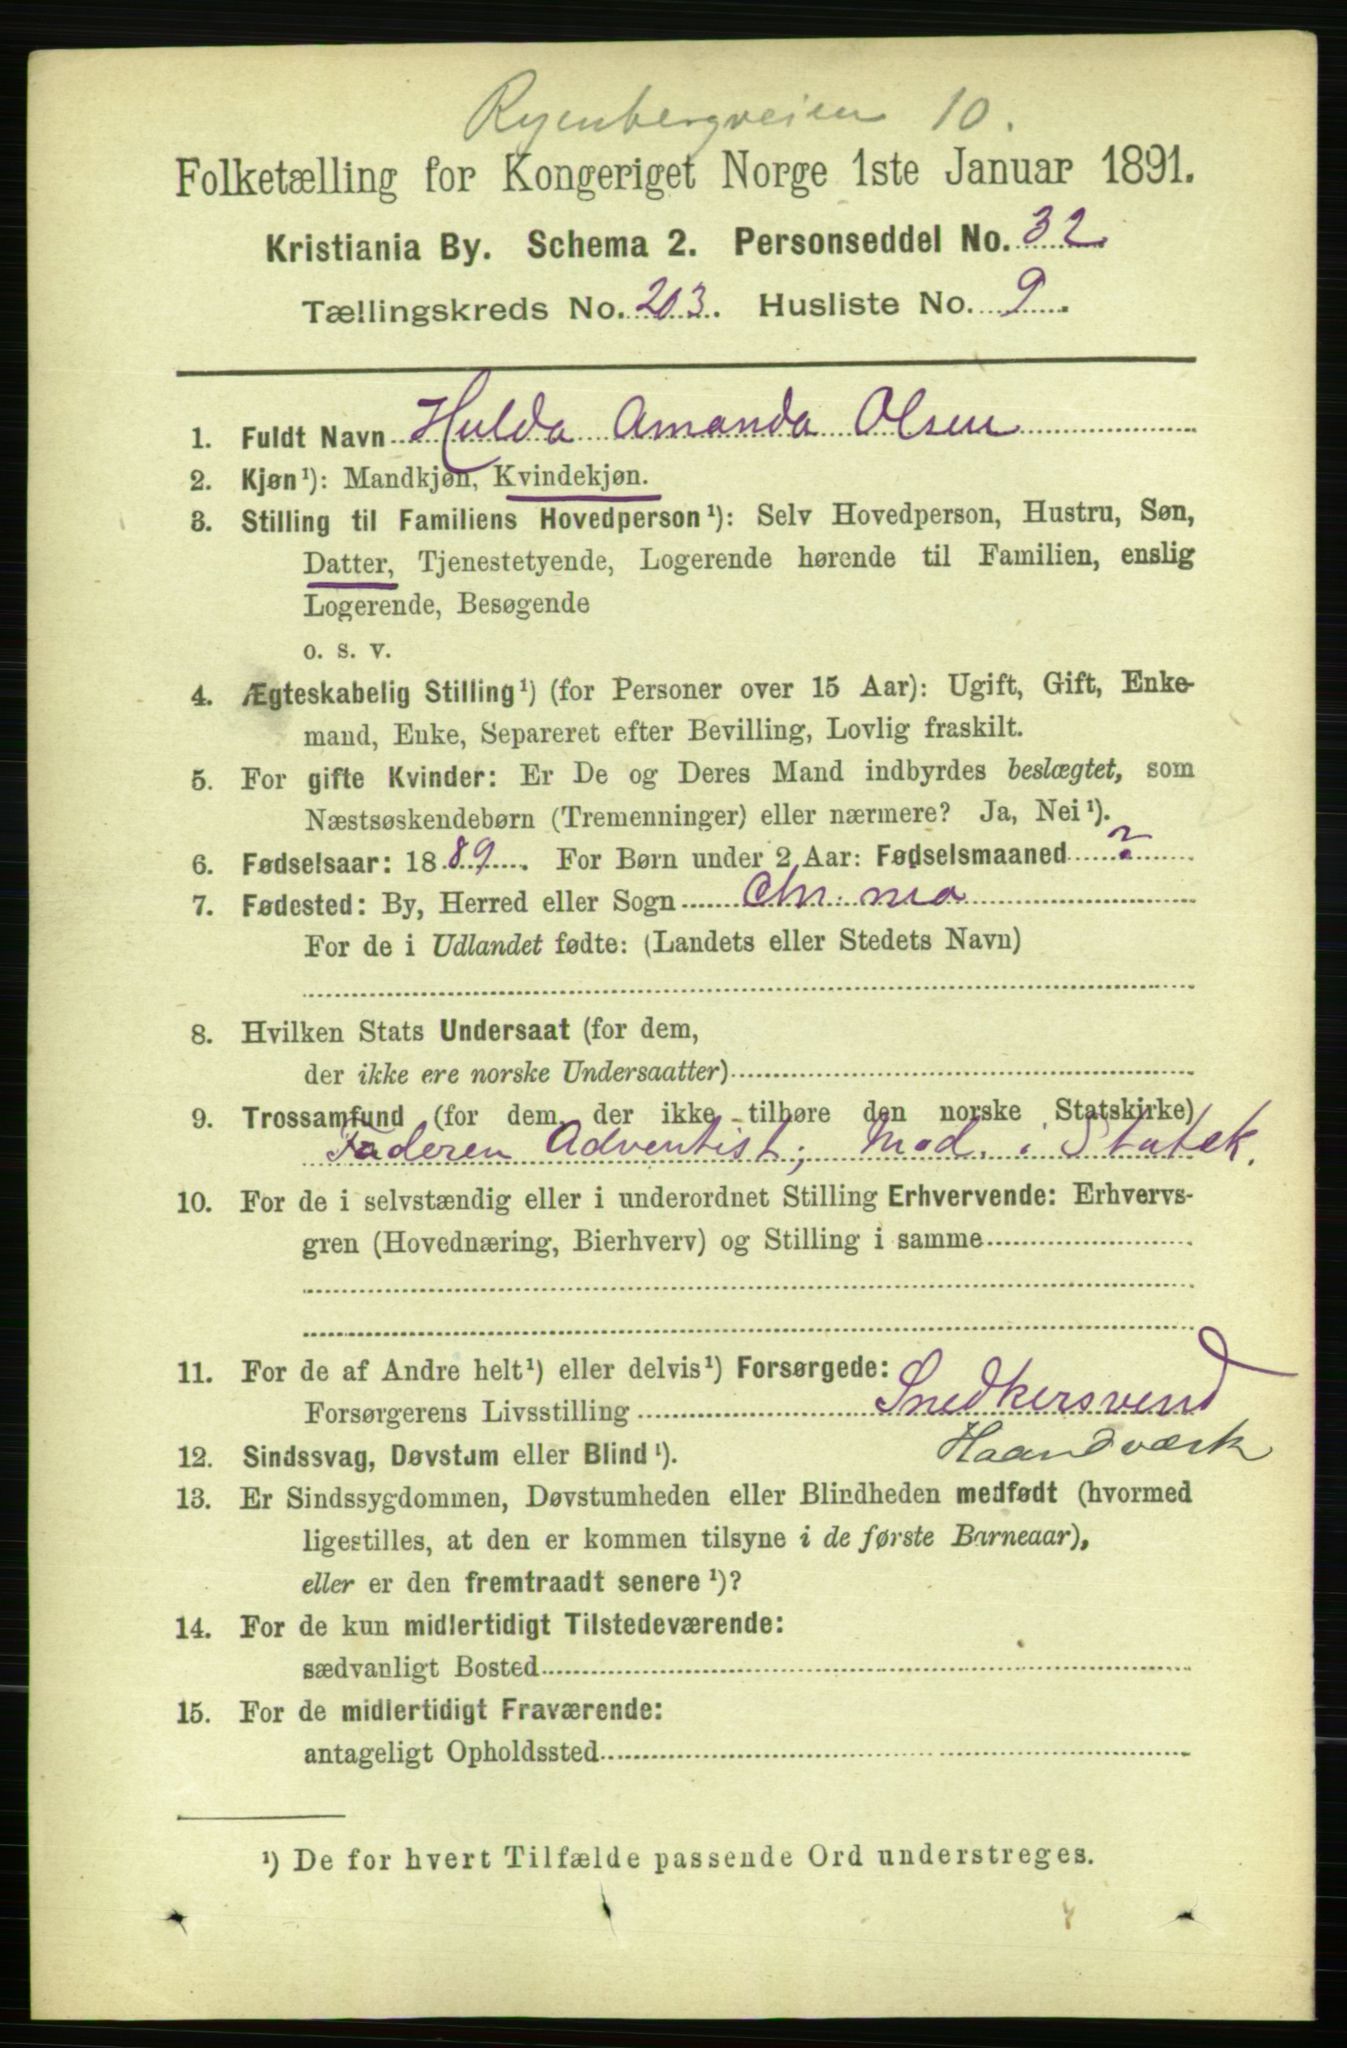 Ryenbergveien 10.
Folketælling for Kongeriget Norge 1ste Januar 1891.
Kristiania By. Schema 2. Personseddel No. 32
Tællingskreds No. 203. Husliste No. 9.
1. Fuldt Navn Hulda Amanda Olsen
2. Kjøn¹): Mandkjøn, Kvindekjøn.
3. Stilling til Familiens Hovedperson¹): Selv Hovedperson, Hustru, Søn,
Datter, Tjenestetyende, Logerende hørende til Familien, enslig
Logerende, Besøgende
o. s. v.
4. Ægteskabelig Stilling¹) (for Personer over 15 Aar): Ugift, Gift, Enke-
mand, Enke, Separeret efter Bevilling, Lovlig fraskilt.
5. For gifte Kvinder: Er De og Deres Mand indbyrdes beslægtet, som
Næstsøskendebørn (Tremenninger) eller nærmere? Ja, Nei¹).
6. Fødselsaar: 1889. For Børn under 2 Aar: Fødselsmaaned ?
7. Fødested: By, Herred eller Sogn Chr.nia
For de i Udlandet fødte: (Landets eller Stedets Navn)
8. Hvilken Stats Undersaat (for dem,
der ikke ere norske Undersaatter)
9. Trossamfund (for dem, der ikke tilhøre den norske Statskirke)
Faderen Adventist; Mod. i Statsk.
10. For de i selvstændig eller i underordnet Stilling Erhvervende: Erhvervs-
gren (Hovednæring, Bierhverv) og Stilling i samme
11. For de af Andre helt¹) eller delvis¹) Forsørgede:
Forsørgerens Livsstilling Snedkersvend
Haandværk
12. Sindssvag, Døvstum eller Blind¹).
13. Er Sindssygdommen, Døvstumheden eller Blindheden medfødt (hvormed
ligestilles, at den er kommen tilsyne i de første Barneaar),
eller er den fremtraadt senere¹)?
14. For de kun midlertidigt Tilstedeværende:
sædvanligt Bosted
15. For de midlertidigt Fraværende:
antageligt Opholdssted
¹) De for hvert Tilfælde passende Ord understreges.